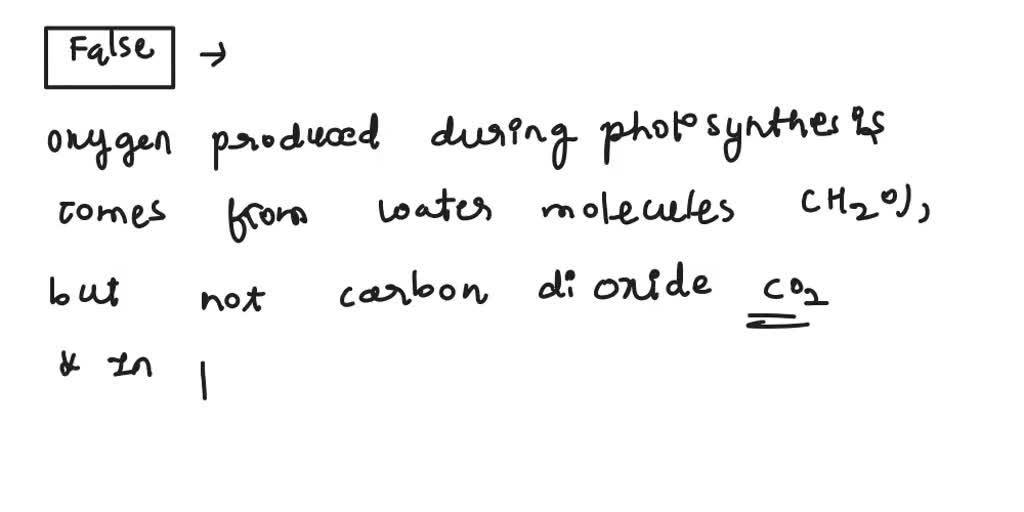 False →
oxygen produced during photosynthesis
comes from water molecules (H2O),
but not carbon dioxide CO2
* In